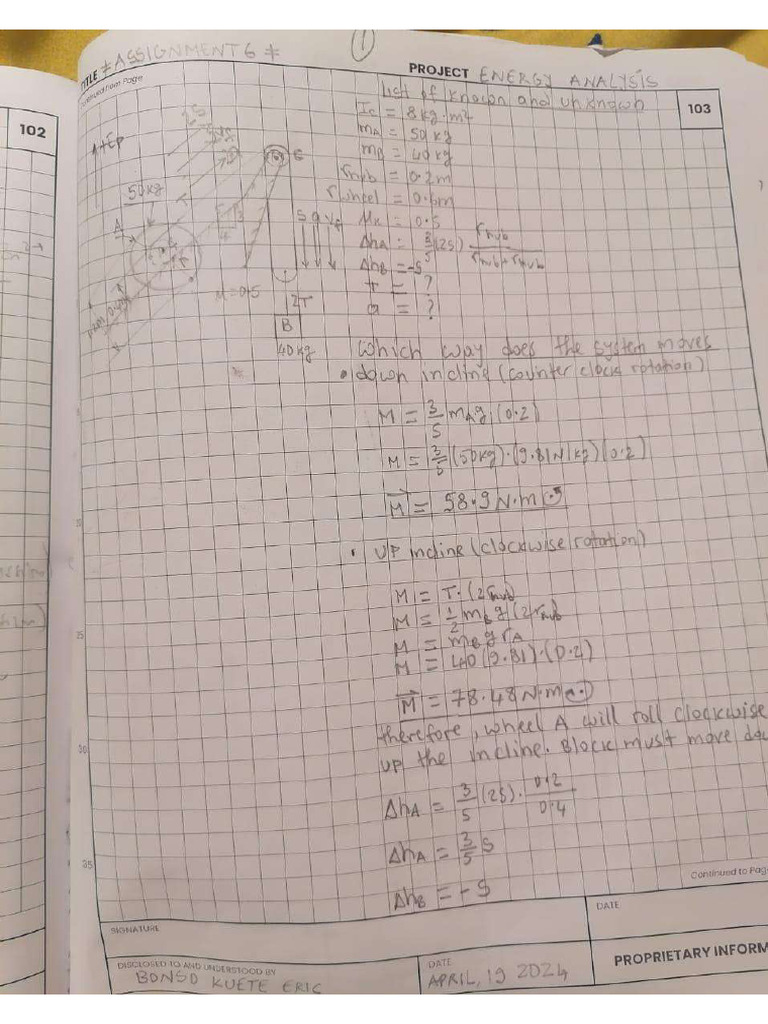 TITLE #ASSIGNMENT 6 #
1
PROJECT ENERGY ANALYSIS
Continued from Page
103
102
List of known and unknown
Ic = 8kg·m²
mA = 50kg
mB = 40kg
rhub = 0.2m
rwheel = 0.6m
Mk = 0.5
ΔhA = 3/5 (2S) rhub/rhub+rhub
ΔhB = -S
T = ?
a = ?
50kg
A
M = 0.5
2T
B
40kg
which way does the system moves
• down incline (counter clock rotation)
M = 3/5 mAg (0.2)
M = 3/5 (50kg)·(9.81N/kg)(0.2)
M = 58.9 N·m
• UP incline (clockwise rotation)
M = T·(2rhub)
M = 1/2 mBg (2rhub)
M = mBg rA
M = 40(9.81)·(0.2)
M = 78.48 N·m
therefore, wheel A will roll clockwise
up the incline. Block must move
ΔhA = 3/5 (2S)· 0.2/0.4
ΔhA = 3/5 S
ΔhB = -S
25
30
35
Continued to Pag
SIGNATURE
DATE
DISCLOSED TO AND UNDERSTOOD BY
BONSO KUETE ERIC
DATE
APRIL, 19 2024
PROPRIETARY INFORM